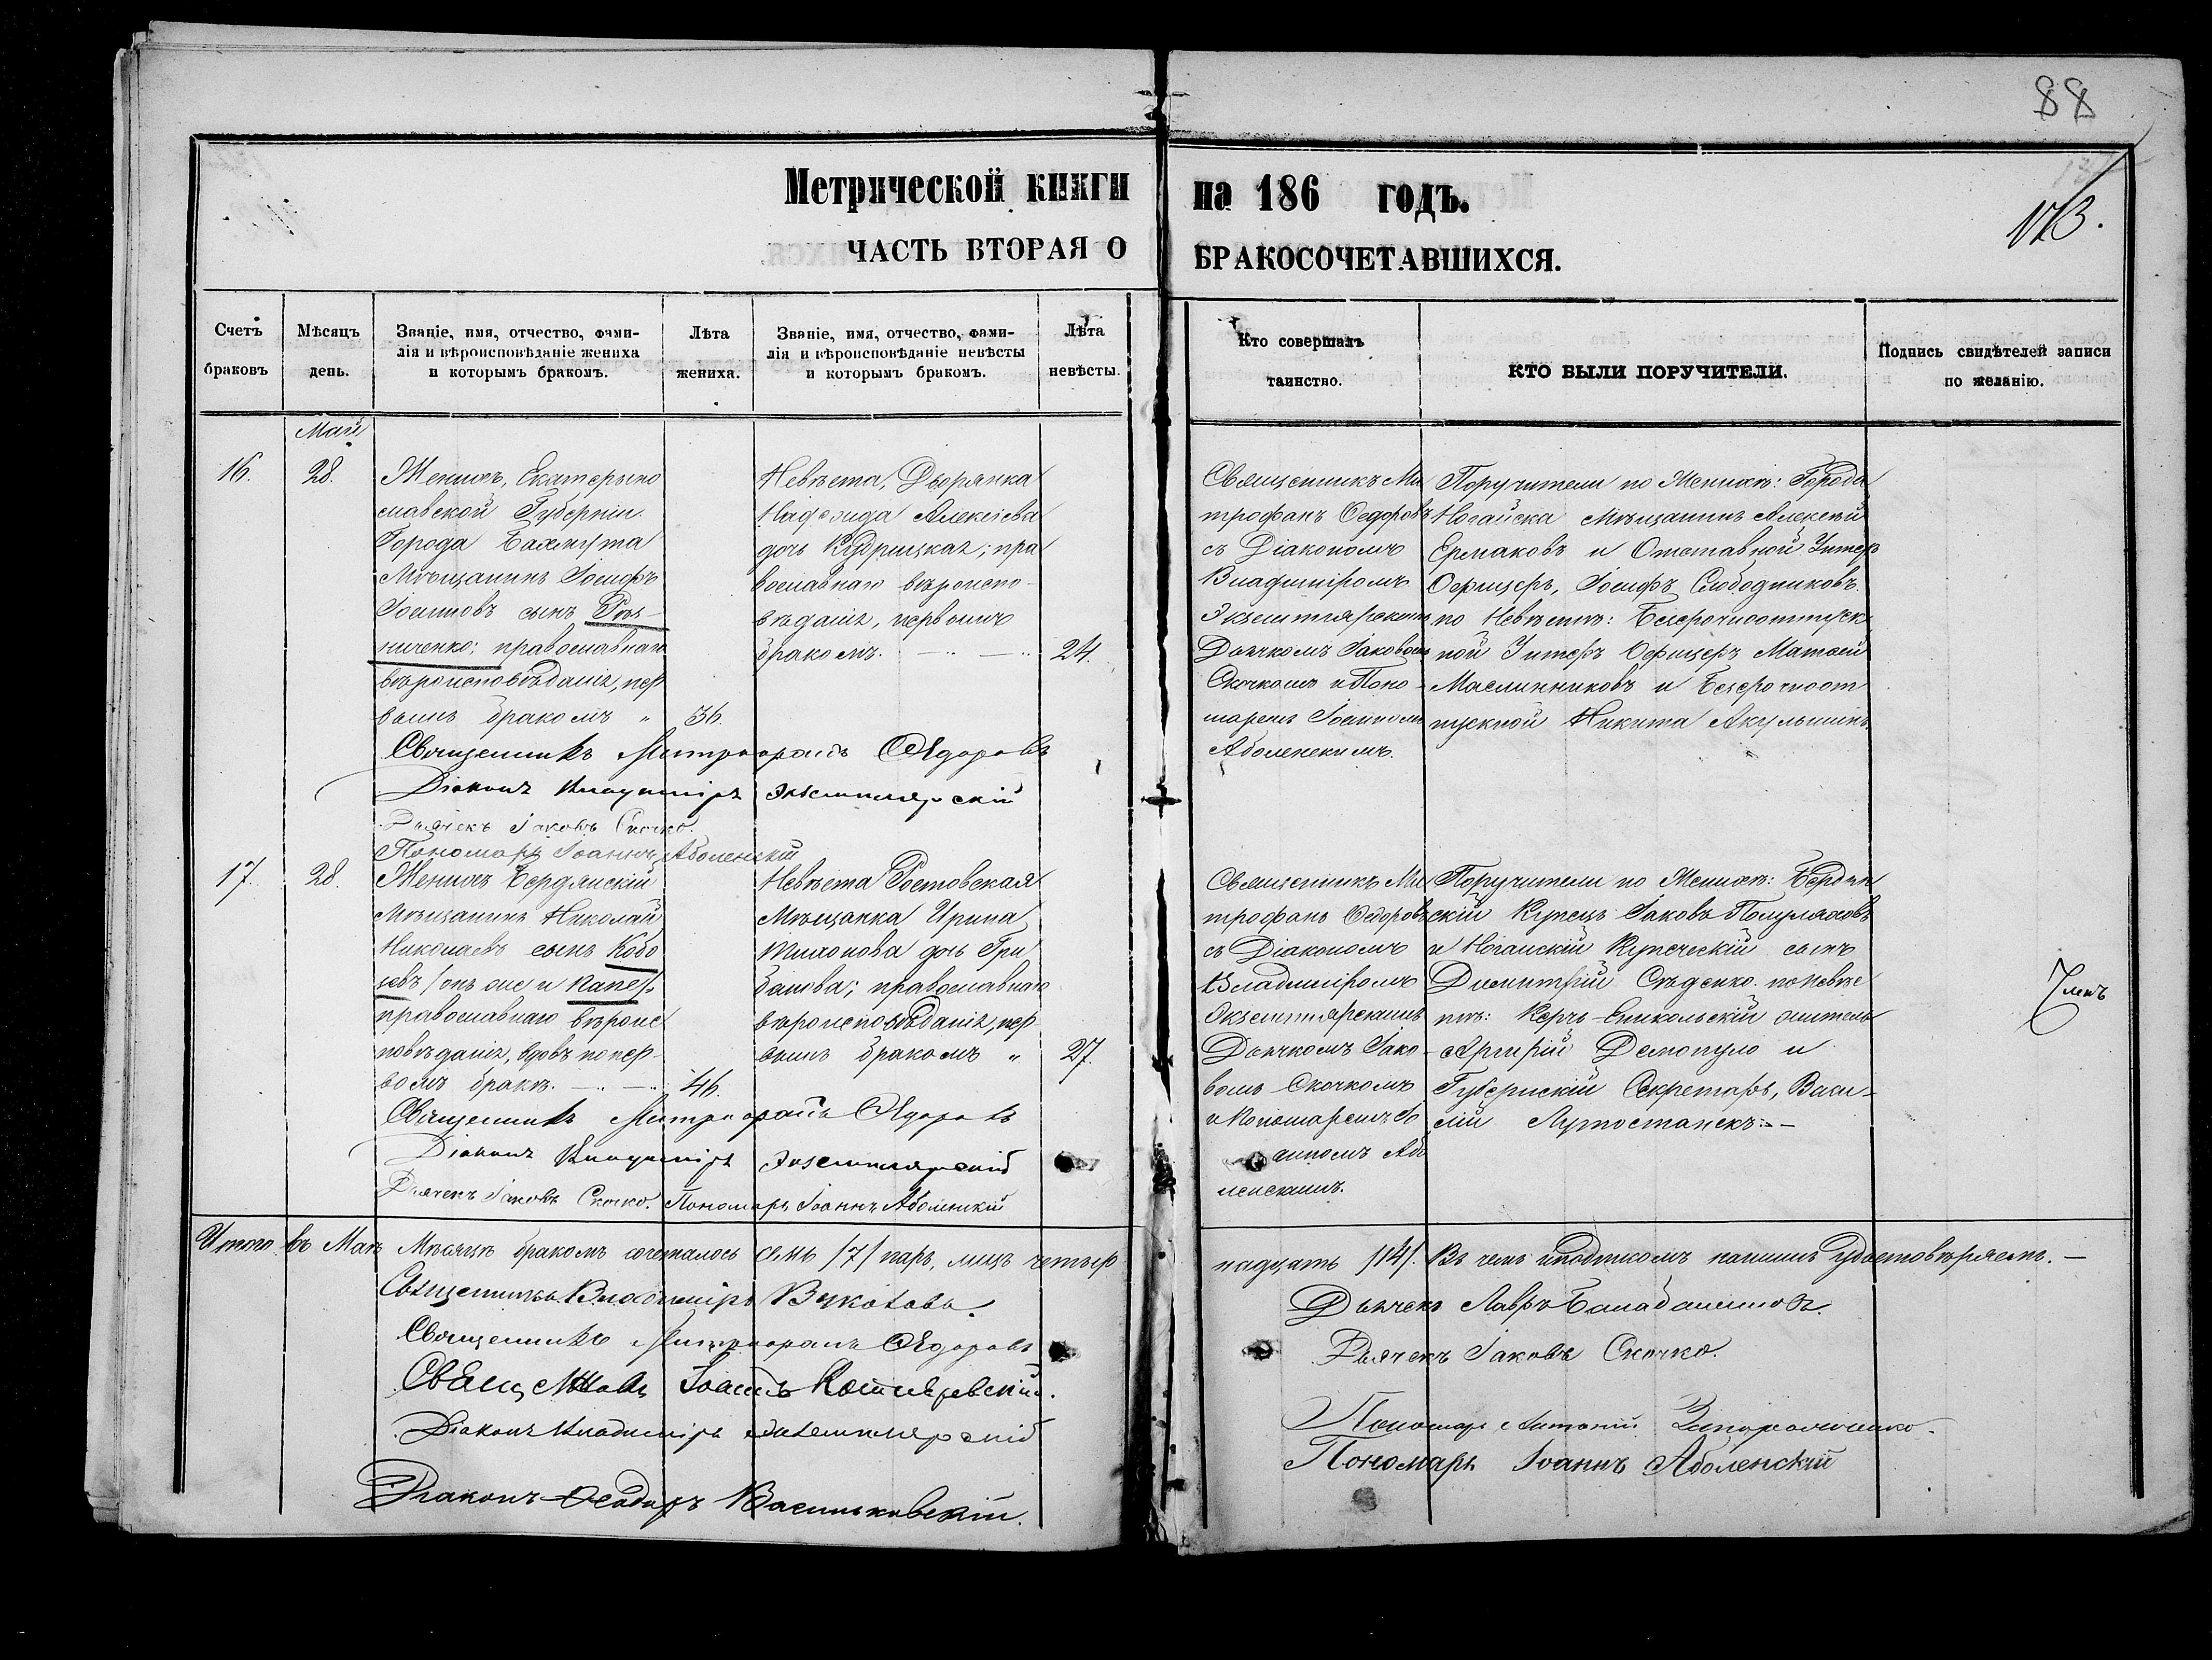 88
173.
Метрической книги на 186 годъ.
ЧАСТЬ ВТОРАЯ О БРАКОСОЧЕТАВШИХСЯ.
Счетъ браковъ
Мѣсяцъ день.
Званіе, имя, отчество, фами-
лія и вѣроисповѣданіе жениха
и которымъ бракомъ.
Лѣта жениха.
Званіе, имя, отчество, фами-
лія и вѣроисповѣданіе невѣсты
и которымъ бракомъ.
Лѣта невѣсты.
Кто совершалъ таинство.
КТО БЫЛИ ПОРУЧИТЕЛИ.
Подпись свидѣтелей записи
по желанію.
Май
16.
28.
Женихъ, Екатерино
славской Губерніи
Города Бахмута
Мѣщанинъ Іосифъ
Іосифовъ сынъ
ниченко; православнаго
вѣроисповѣданія, пер
вымъ бракомъ "
36.
Невѣста, Дворянка
Надежда Алексіева
дочь Кудрицкая; пра
вославнаго вѣроиспо-
вѣданія, первымъ
бракомъ.
24.
Священникъ Ми
трофанъ Ѳедоровъ
съ Діакономъ
Владиміромъ
Экземплярскимъ
Дьячкомъ Іаковомъ
Скочкомъ и Поно-
маремъ Іоанномъ
Аболенскимъ.
Поручители по Женихѣ: Города
Ногайска Мѣщанинъ Алексѣй
Ермаковъ и Отставной Унтеръ
Офицеръ, Іосифъ Слободчиковъ.
по Невѣстѣ: Безсрочноотпуск
ной Унтеръ Офицеръ Матвей
Маслинниковъ и Безсрочноот
пускной Никита Акульшинъ.
Священникъ Митрофанъ Ѳедоровъ
Діаконъ Владиміръ Экземплярскій
Дьячекъ Іаковъ Скочко.
Пономарь Іоаннъ Аболенскій
17.
28.
Женихъ Бердянскій
Мѣщанинъ Николай
Николаевъ сынъ Кобо
цевъ /онъ же и Капе/.
православнаго вѣроис
повѣданія, вдовъ по пер-
вомъ бракѣ.
46.
Невѣста Ростовская
Мѣщанка Ирина
Тихонова дочь Гри
банова; православнаго
вѣроисповѣданія, пер
вымъ бракомъ "
27.
Священникъ Ми
трофанъ Ѳедоровъ
съ Діакономъ
Владиміромъ
Экземплярскимъ
Дьячкомъ Іако-
вомъ Скочкомъ
и Пономаремъ Іо
анномъ Або
ленскимъ.
Поручители по Женихѣ: Бердян
скій Купецъ Іаковъ Полуляховъ
и Ногайскій Купеческій сынъ
Димитрій Сѣденко. по Невѣс
тѣ: Керчь-Еникольскій житель
Аргирій Демопуло и
Губернскій Секретарь, Васи-
лій
Священникъ Митрофанъ Ѳедоровъ
Діаконъ Владиміръ Экземплярскій
Дьячекъ Іаковъ Скочко. Пономарь Іоаннъ Аболенскій
Итого въ Маѣ Мѣсяцѣ бракомъ сочеталось семь /7/ паръ, лицъ четыр
надцать /14/. Въ чемъ и подписомъ нашимъ удостовѣряемъ. —
Священникъ Владиміръ
Священникъ Митрофанъ Ѳедоровъ
Священникъ Іоаннъ
Діаконъ Владиміръ Экземплярскій
Діаконъ Ѳеодоръ Васильковскій.
Дьячекъ Лавръ
Дьячекъ Іаковъ Скочко.
Пономарь Антоній
Пономарь Іоаннъ Аболенскій